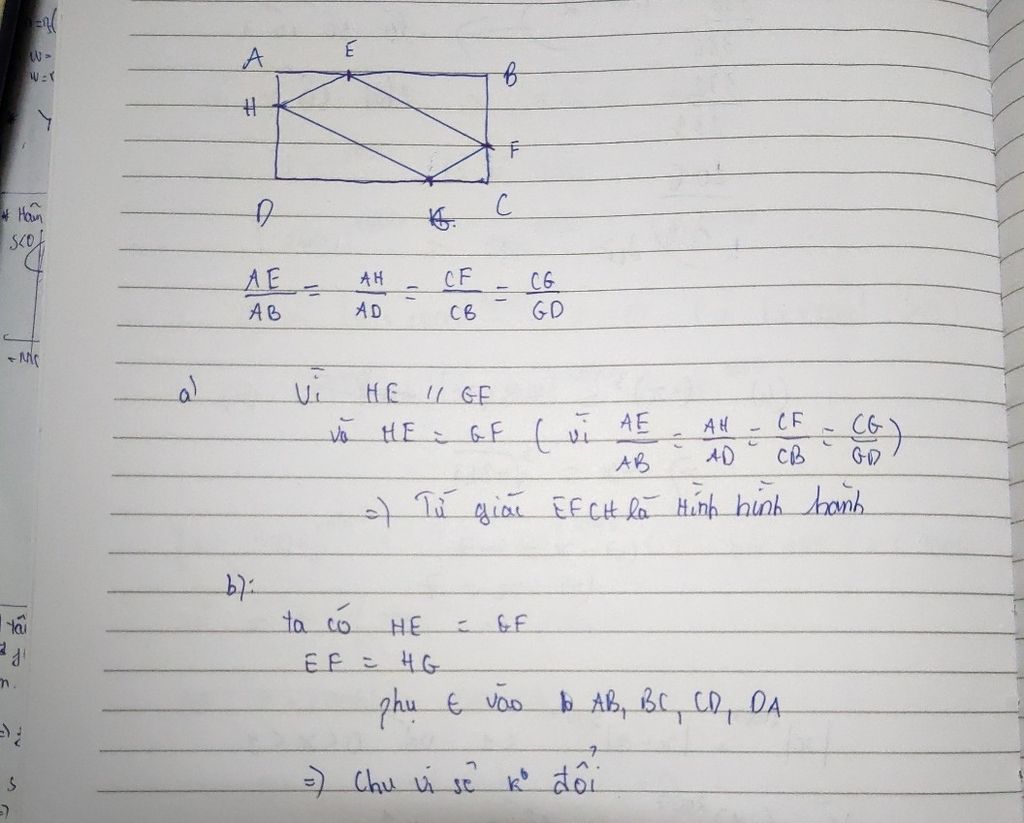 A E B
H
F
D G C
AE/AB = AH/AD = CF/CB = CG/GD
a) Vì HE // GF
và HE = GF ( vì AE/AB = AH/AD = CF/CB = CG/GD )
=) Tứ giác EFGH là Hình bình hành
b):
ta có HE = GF
EF = HG
phụ ∈ vào AB, BC, CD, DA
=) Chu vi sẽ ko đổi